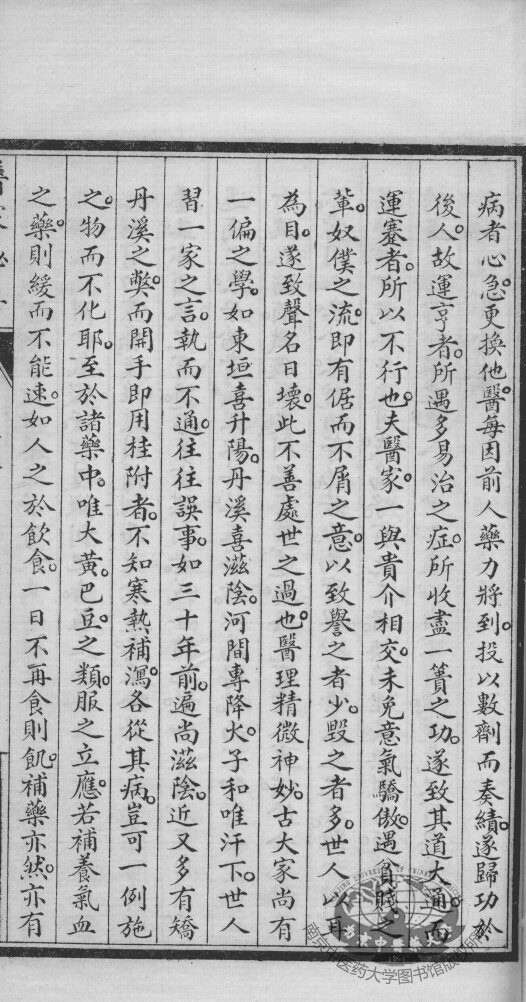 病者心急。更換他醫每因前人藥力將到。投以數劑而奏績。遂歸功於
後人。故運亨者。所遇多易治之症。所收盡一簣之功。遂致其道大通。而
運蹇者。所以不行也。夫醫家一與貴介相交。未免意氣驕傲。遇貧賤之
輩。奴僕之流。即有倨而不屑之意。以致譽之者少。毀之者多。世人以耳
為目。遂致聲名日壞。此不善處世之過也。醫理精微神妙。古大家尚有
一偏之學。如東垣喜升陽。丹溪喜滋陰。河間專降火。子和唯汗下。世人
習一家之言。執而不通。往往誤事。如三十年前。遍尚滋陰。近又多有矯
丹溪之弊。而開手即用桂附者。不知寒熱補瀉。各從其病。豈可一例施
之。物而不化耶。至於諸藥中。唯大黃。巴豆。之類。服之立應。若補養氣血
之藥。則緩而不能速。如人之於飲食。一日不再食則飢。補藥亦然。亦有
南京中医药大学图书馆版权所有